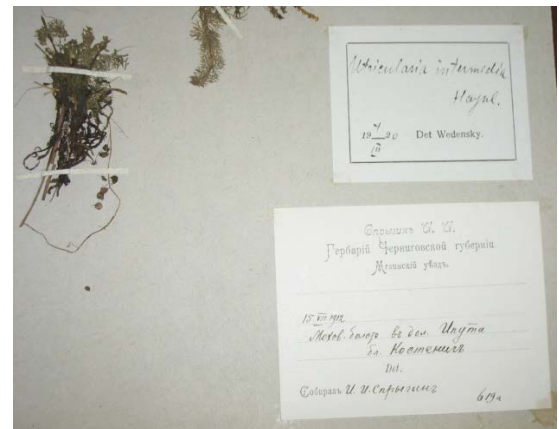 Utricularia intermedia
Hayne.
19 7/III 20 Det Wedensky.
Спрыгинъ И. И.
Гербарій Черниговской губерніи.
Мглинскій уѣздъ.
15 VII 1912
Мохов. болото въ дол. Ипути
бл. Костеничъ
Det.
Собиралъ И. И. Спрыгинъ
619а